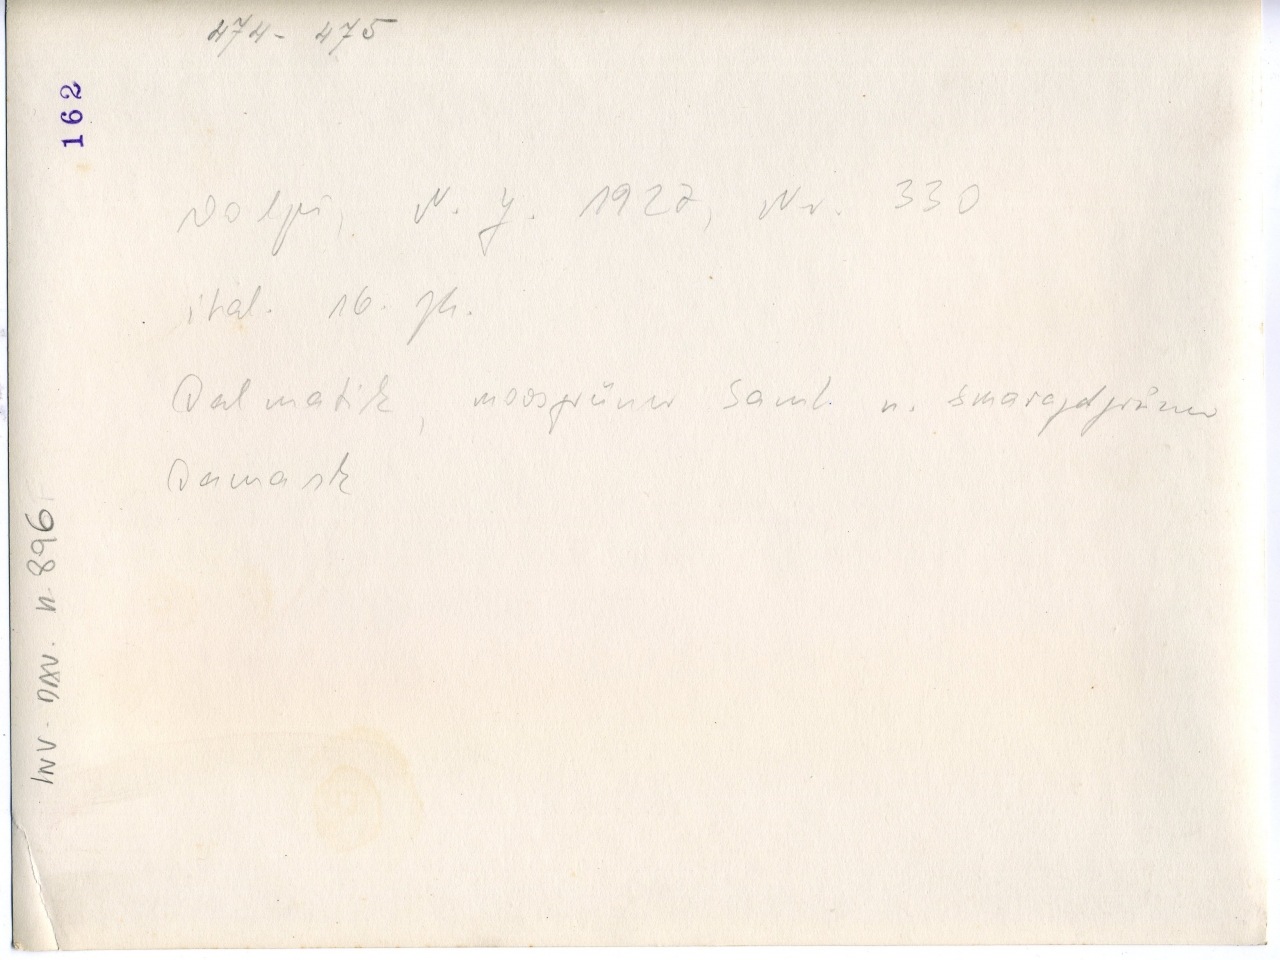 474- 475
162
Volpi, N. Y. 1927, Nr. 330
ital. 16. Jh.
Dalmatik, moosgrüner Samt u. smaragdgrüner
Damask
INV. DAV. n. 896